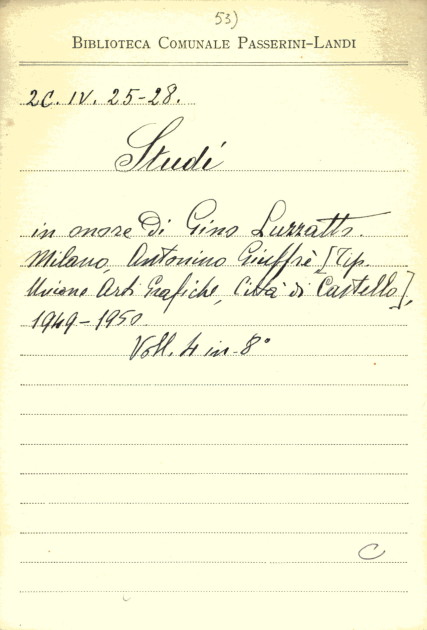 53)
BIBLIOTECA COMUNALE PASSERINI-LANDI
2C. IV. 25-28.
Studi
in onore di Gino Luzzatto.
Milano, Antonino Giuffrè [Tip.
Unione Arti Grafiche, Città di Castello],
1949-1950.
Voll. 4 in-8°
C